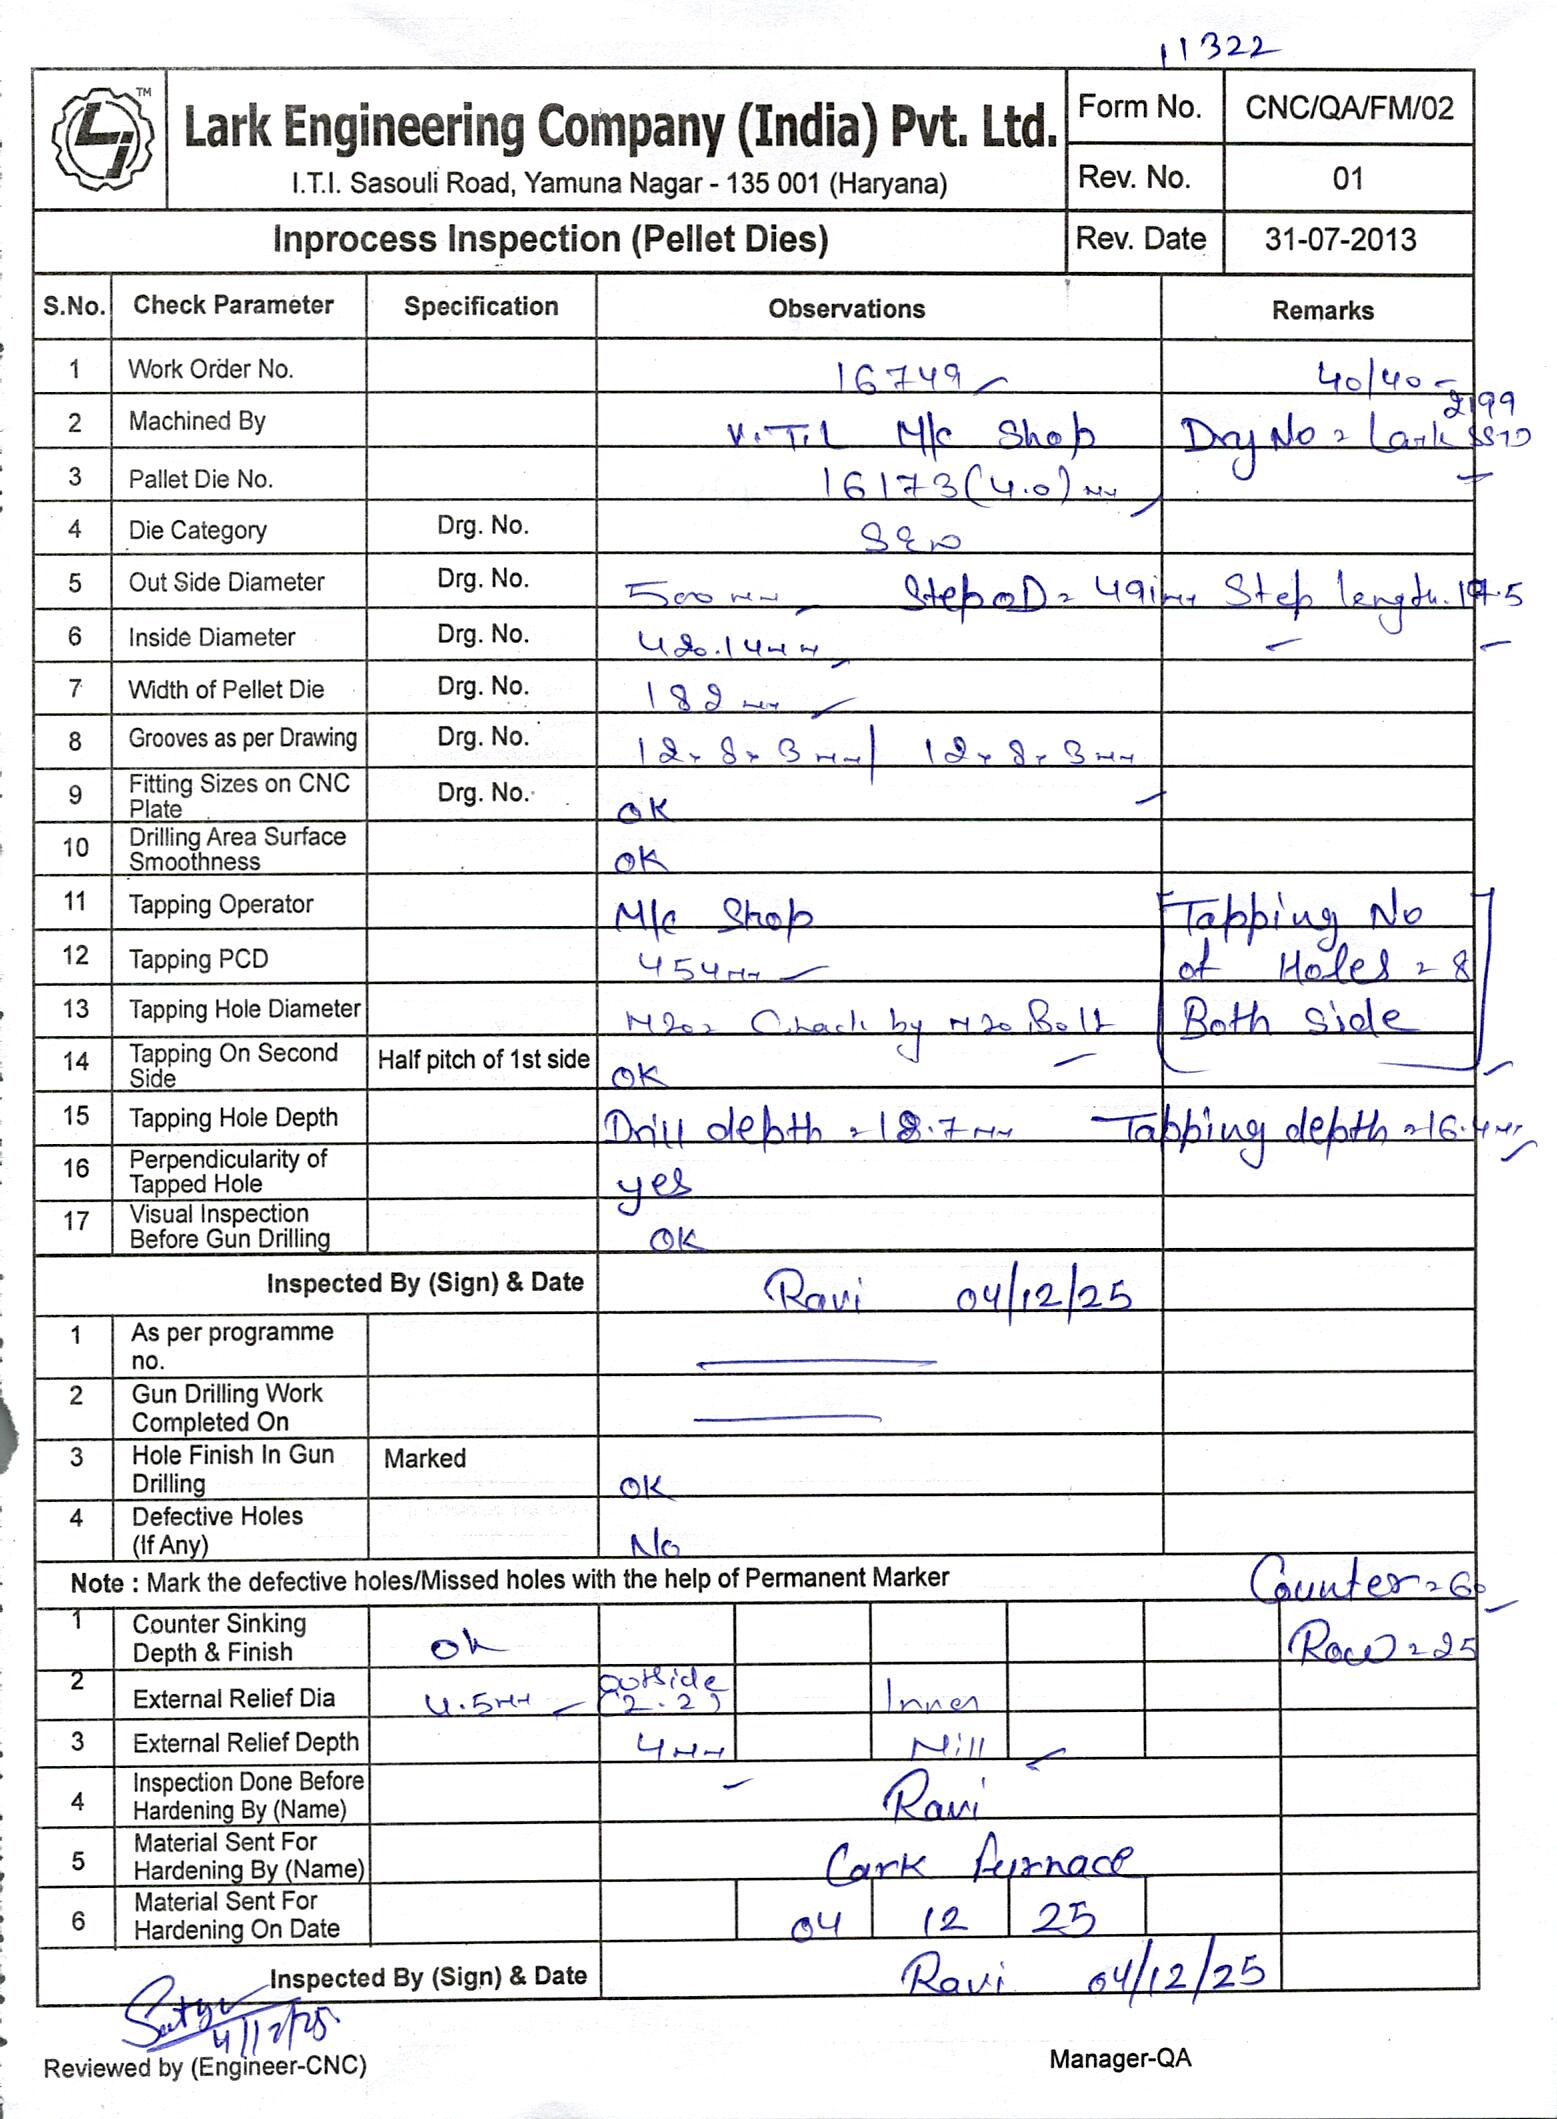 11322
TM
Lark Engineering Company (India) Pvt. Ltd.
I.T.I. Sasouli Road, Yamuna Nagar - 135 001 (Haryana)
Form No. CNC/QA/FM/02
Rev. No. 01
Inprocess Inspection (Pellet Dies) Rev. Date 31-07-2013
S.No. Check Parameter Specification Observations Remarks
1 Work Order No. 16749 40/40
2 Machined By M/c Shop Drg No = Lark 2199
3 Pallet Die No. 16173 (4.0) mm
4 Die Category Drg. No.
5 Out Side Diameter Drg. No. 500 mm Step OD = 491mm Step length.
6 Inside Diameter Drg. No. 420.14mm
7 Width of Pellet Die Drg. No. 182 mm
8 Grooves as per Drawing Drg. No. 12 x 8 x 3 mm / 12 x 8 x 3 mm
9 Fitting Sizes on CNC Plate Drg. No. OK
10 Drilling Area Surface Smoothness OK
11 Tapping Operator M/c Shop Tapping No
12 Tapping PCD 454mm of Holes = 8
13 Tapping Hole Diameter M20 = Check by M20 Bolt Both Side
14 Tapping On Second Side Half pitch of 1st side OK
15 Tapping Hole Depth Drill depth = 18.7mm Tapping depth = 16.4mm
16 Perpendicularity of Tapped Hole yes
17 Visual Inspection Before Gun Drilling OK
Inspected By (Sign) & Date Ravi 04/12/25
1 As per programme no.
2 Gun Drilling Work Completed On
3 Hole Finish In Gun Drilling Marked OK
4 Defective Holes (If Any) No
Note : Mark the defective holes/Missed holes with the help of Permanent Marker Counter = 60
1 Counter Sinking Depth & Finish ok Row = 25
2 External Relief Dia 4.5mm outside (2.2) Inner
3 External Relief Depth 4mm Nill
4 Inspection Done Before Hardening By (Name) Ravi
5 Material Sent For Hardening By (Name) Lark furnace
6 Material Sent For Hardening On Date 04 12 25
Inspected By (Sign) & Date Ravi 04/12/25
4/12/25
Reviewed by (Engineer-CNC) Manager-QA